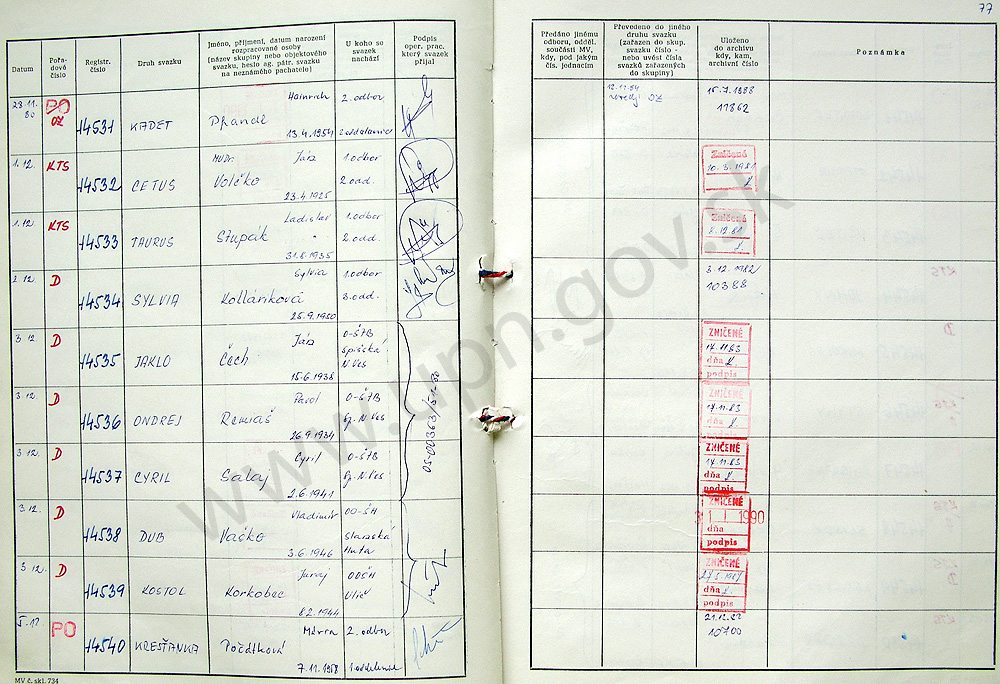 77
Datum
Pořa-
dové
číslo
Registr.
číslo
Druh svazku
Jméno, příjmení, datum narození
rozpracované osoby
(název skupiny nebo objektového
svazku, heslo ag. pátr. svazku
na neznámého pachatele)
U koho se
svazek
nachází
Podpis
oper. prac.
který svazek
přijal
Předáno jinému
odboru, odděl.
součásti MV,
kdy, pod jakým
čís. jednacím
Převedeno do jiného
druhu svazku
(zařazen do skup.
svazku číslo -
nebo uvést čísla
svazků zařazených
do skupiny)
Uloženo
do archivu
kdy, kam,
archivní číslo
Poznámka
28.11.
80
PO
OZ
14531
KADET
Heinrich
Pfandl
13.4.1954
2.odbor
2.oddelenie
12.11.84
OZ
15.7.1988
11862
1.12.
KTS
14532
CETUS
MUDr.
Ján
Volčko
23.4.1925
1.odbor
2.odd.
Zničené
10.3.1981
1.12.
KTS
14533
TAURUS
Ladislav
Stupák
31.8.1935
1.odbor
2.odd.
Zničené
8.12.81
2.12.
D
14534
SYLVIA
Sylvia
Kolláriková
25.9.1950
1.odbor
3.odd.
3.12.1982
10388
3.12.
D
14535
JAKLO
Ján
Čech
15.6.1938
O-ŠTB
Spišská
N.Ves
05-00363/51-80
ZNIČENÉ
14.11.83
dňa
podpis
3.12.
D
14536
ONDREJ
Pavol
Remiaš
26.9.1934
O-ŠTB
Sp.N.Ves
ZNIČENÉ
14.11.83
dňa
podpis
3.12.
D
14537
CYRIL
Cyril
Salaj
2.6.1941
O-ŠTB
Sp.N.Ves
ZNIČENÉ
14.11.83
dňa
podpis
3.12.
D
14538
DUB
Vladimír
Vaško
3.6.1946
OO-ŠH
Slanská
Huta
ZNIČENÉ
1990
dňa
podpis
3.12.
D
14539
KOSTOL
Juraj
Korkobec
8.2.1944
OOŠH
Ulič
ZNIČENÉ
dňa
podpis
5.12
PO
14540
KRESŤANKA
Mária
7.11.1958
2.odbor
1.oddelenie
21.12.82
10400
www.upn.gov.sk
MV č. skl. 734